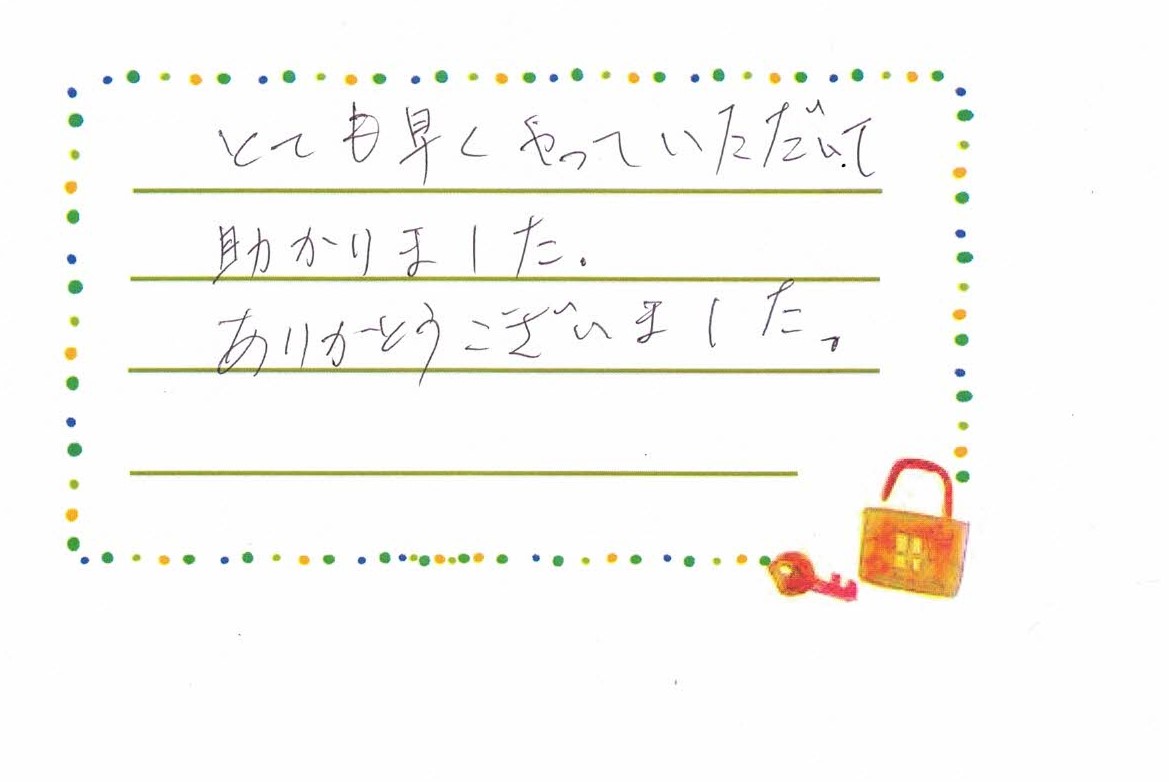 とても早くやっていただいて
助かりました。
ありがとうございました。